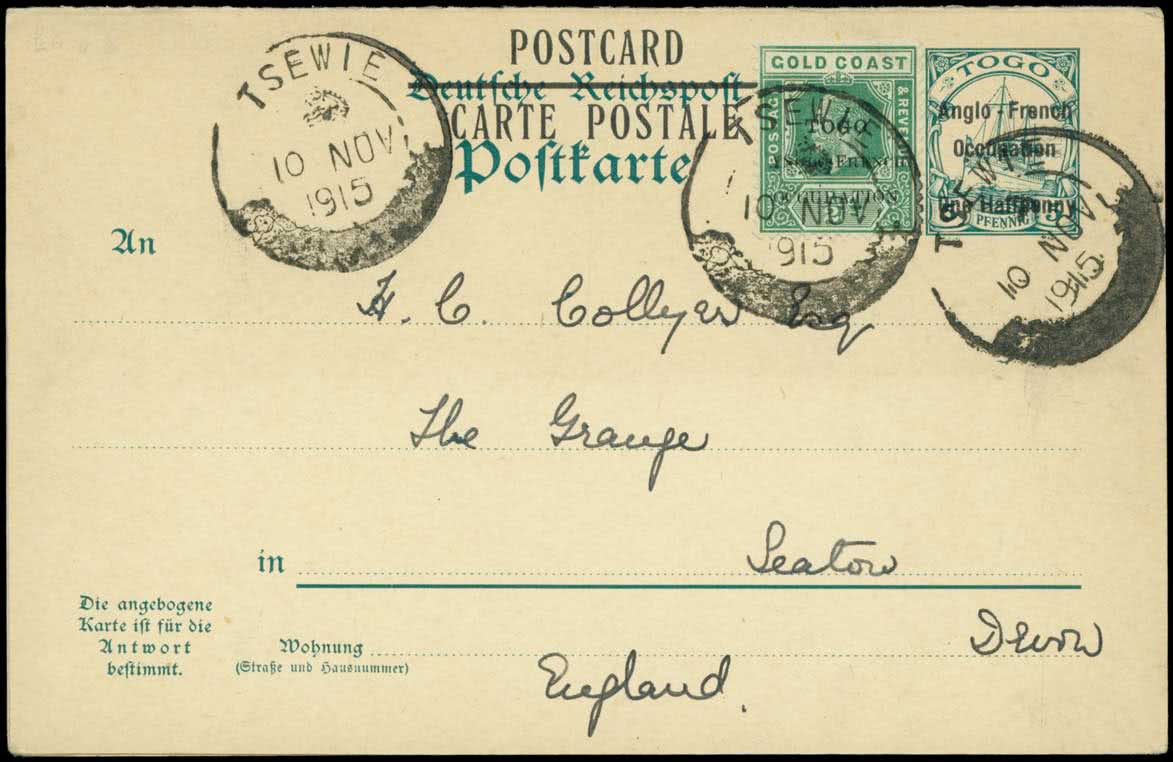 POSTCARD
Deutsche Reichspost
CARTE POSTALE
Postkarte
TSEWIE
10 NOV
1915
GOLD COAST
POSTAGE & REVENUE
TOGO
ANGLO-FRENCH
OCCUPATION
TSEWIE
10 NOV
1915
TOGO
Anglo-French
Occupation
One Halfpenny
5 PFENNIG 5
TSEWIE
10 NOV
1915
An
H. C. Collyer Esq
The Grange
in
Seaton
Die angebogene
Karte ist für die
Antwort
bestimmt.
Wohnung
(Straße und Hausnummer)
Devon
England.